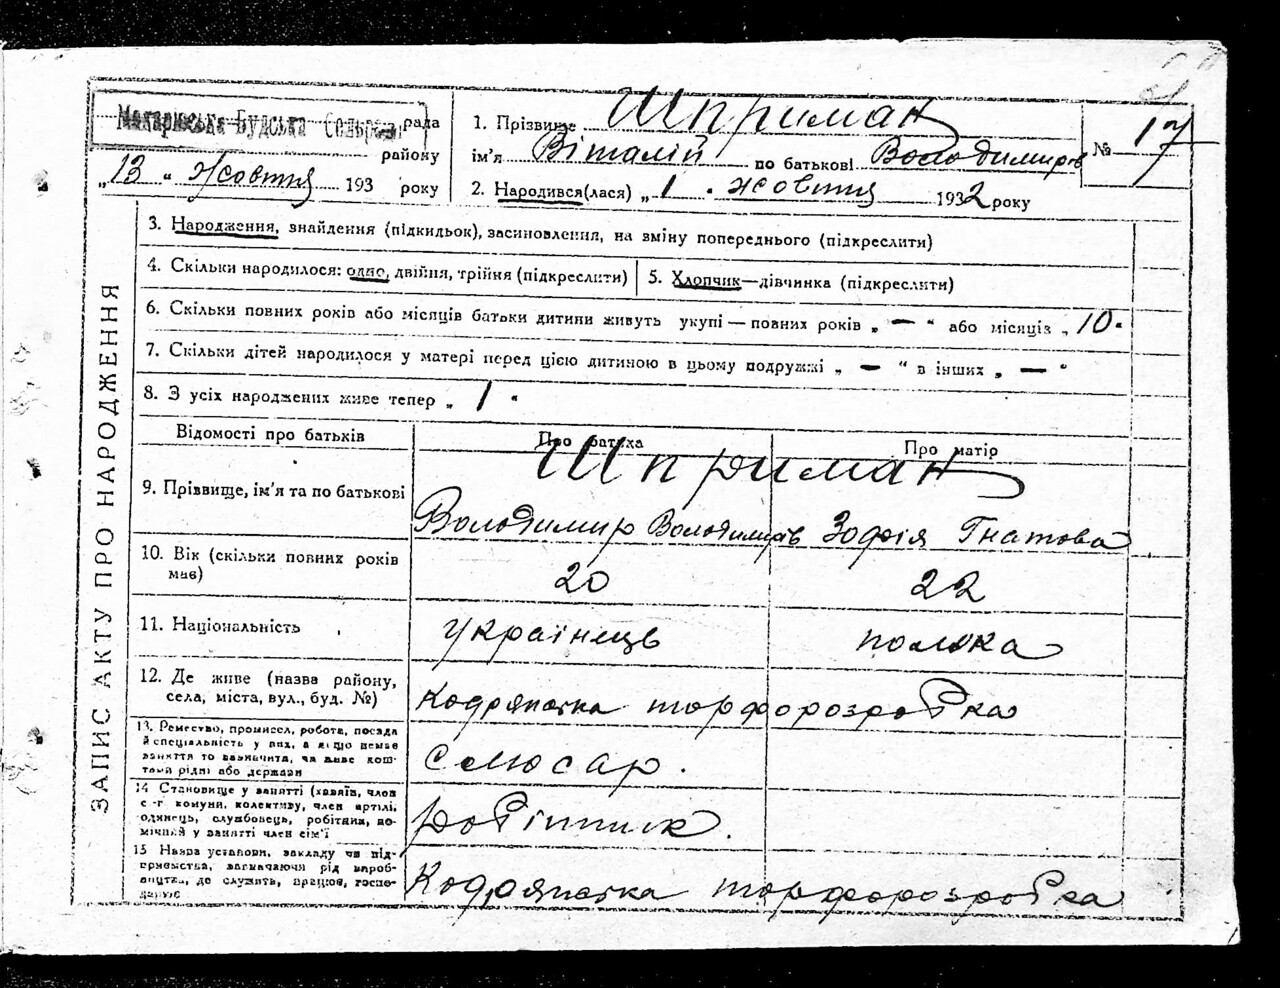 Макарівська Будська Сельрада рада
району
„13 “ жовтня 193 року
1. Прізвище Шприман
ім'я Віталій по батькові Володимирів
2. Народився(лася) „ 1 “ жовтня 1932 року
№ 17
ЗАПИС АКТУ ПРО НАРОДЖЕННЯ
3. Народження, знайдення (підкидьок), засиновлення, на зміну попереднього (підкреслити)
4. Скільки народилося: одно, двійня, трійня (підкреслити)
5. Хлопчик—дівчинка (підкреслити)
6. Скільки повних років або місяців батьки дитини живуть укупі — повних років „ — “ або місяців „ 10 “
7. Скільки дітей народилося у матері перед цією дитиною в цьому подружжі „ — “ в інших „ — “
8. З усіх народжених живе тепер „ 1 “
Відомості про батьків
Про батька
Про матір
Шприман
9. Прізвище, ім'я та по батькові
Володимир Володимирів
Зофія Гнатова
10. Вік (скільки повних років має)
20
22
11. Національність
Українець
полька
12. Де живе (назва району,
села, міста, вул., буд. №)
Кодрянська торфорозробка
13. Ремество, промисел, робота, посада
й спеціяльність у них, а якщо немає
заняття то зазначити, чи живе кош-
тами рідні або держави
Слюсар.
14 Становище у занятті (хазяїн, член
с.-г комуни, колективу, член артілі,
одинець, службовець, робітник, по-
мічний у занятті член сім'ї
робітник.
15 Назва установи, закладу чи під-
приємства, зазначаючи рід вироб-
ництва, де служить, працює, госпо-
дарює
Кодрянська торфорозробка